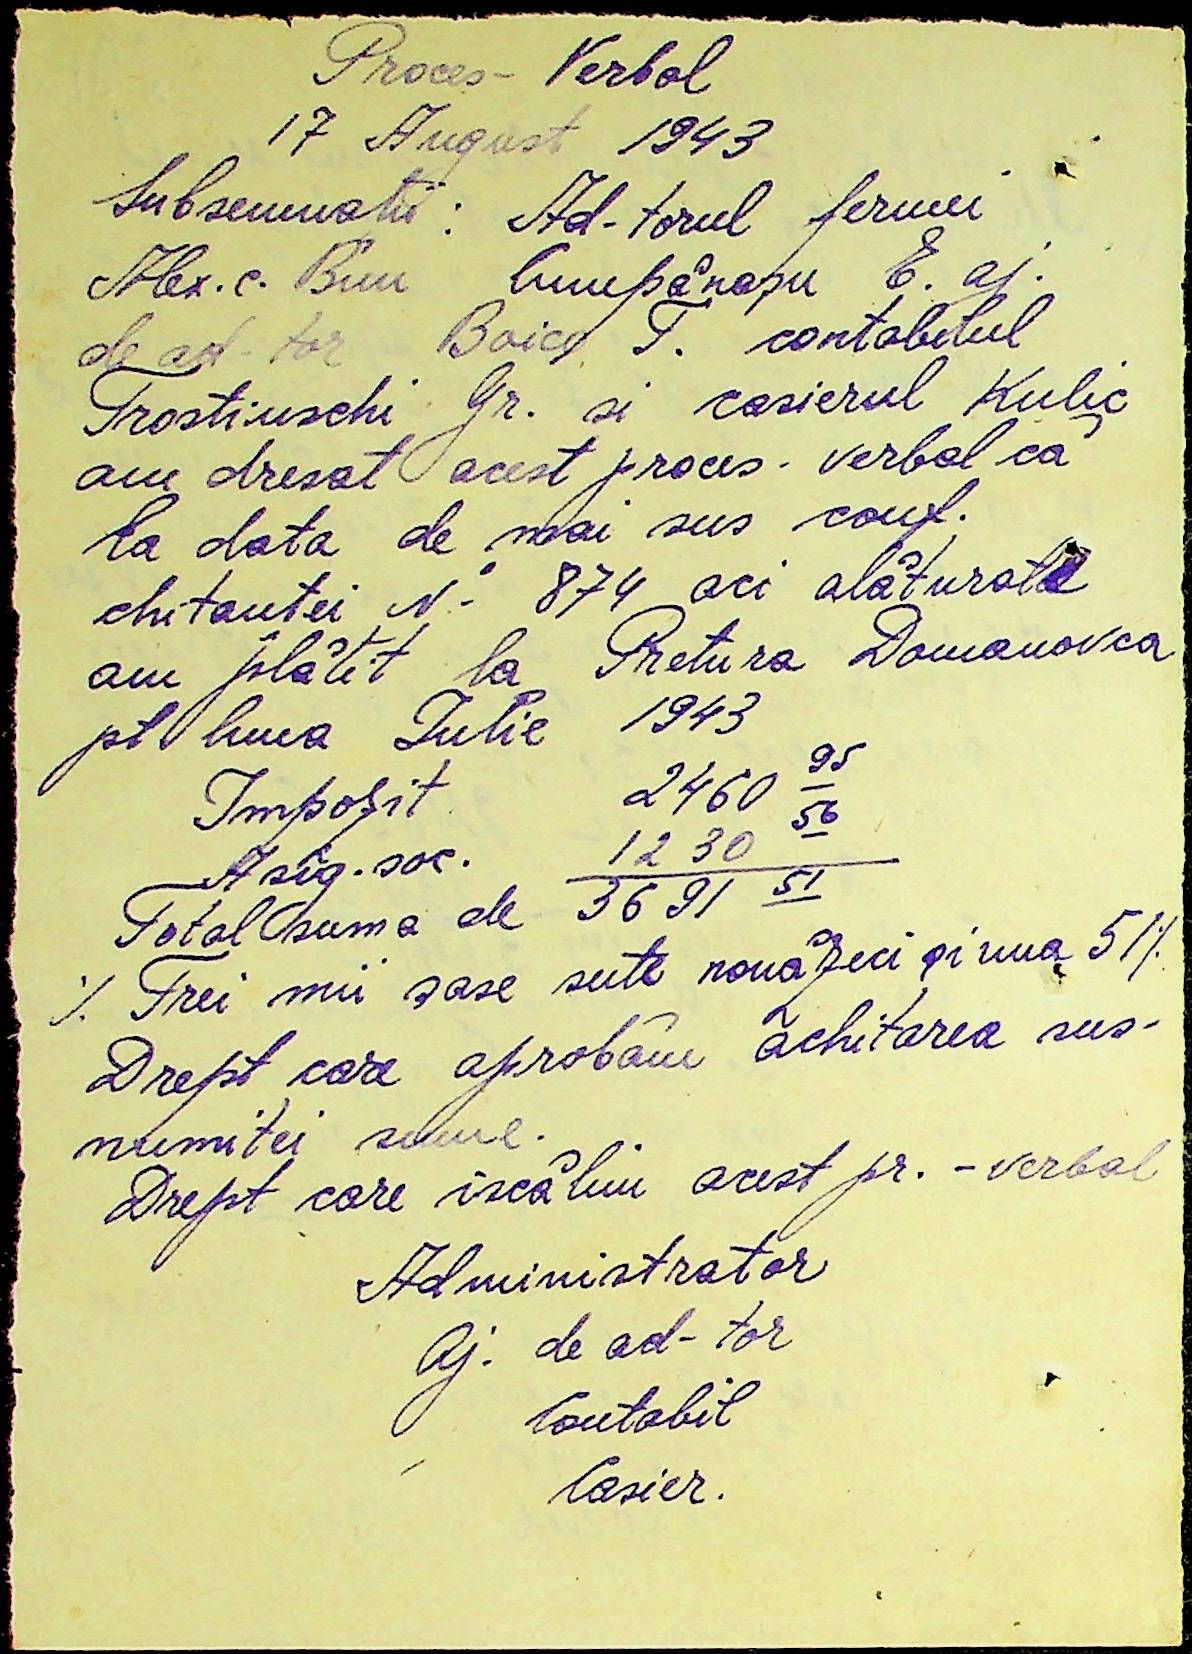 Proces-Verbal
17 August 1943
Subsemnații: Ad-torul fermei
Alex. c. Bun Cumpănașu E. aj.
de ad-tor Boico T. contabilul
Trostiuschi Gr. si casierul Kulic
am dresat acest proces-verbal că
la data de mai sus conf.
chitantei No 874 aci alăturată
am plătit la Pretura Domanovca
pt luna Iulie 1943
Impozit 2460 95
Asig. soc. 1230 56
Total suma de 3691 51
./. Trei mii șase sute nouăzeci și una 51/.
Drept care aprobăm achitarea sus-
numitei sume.
Drept care iscălim acest pr.-verbal
Administrator
Aj. de ad-tor
Contabil
Casier.